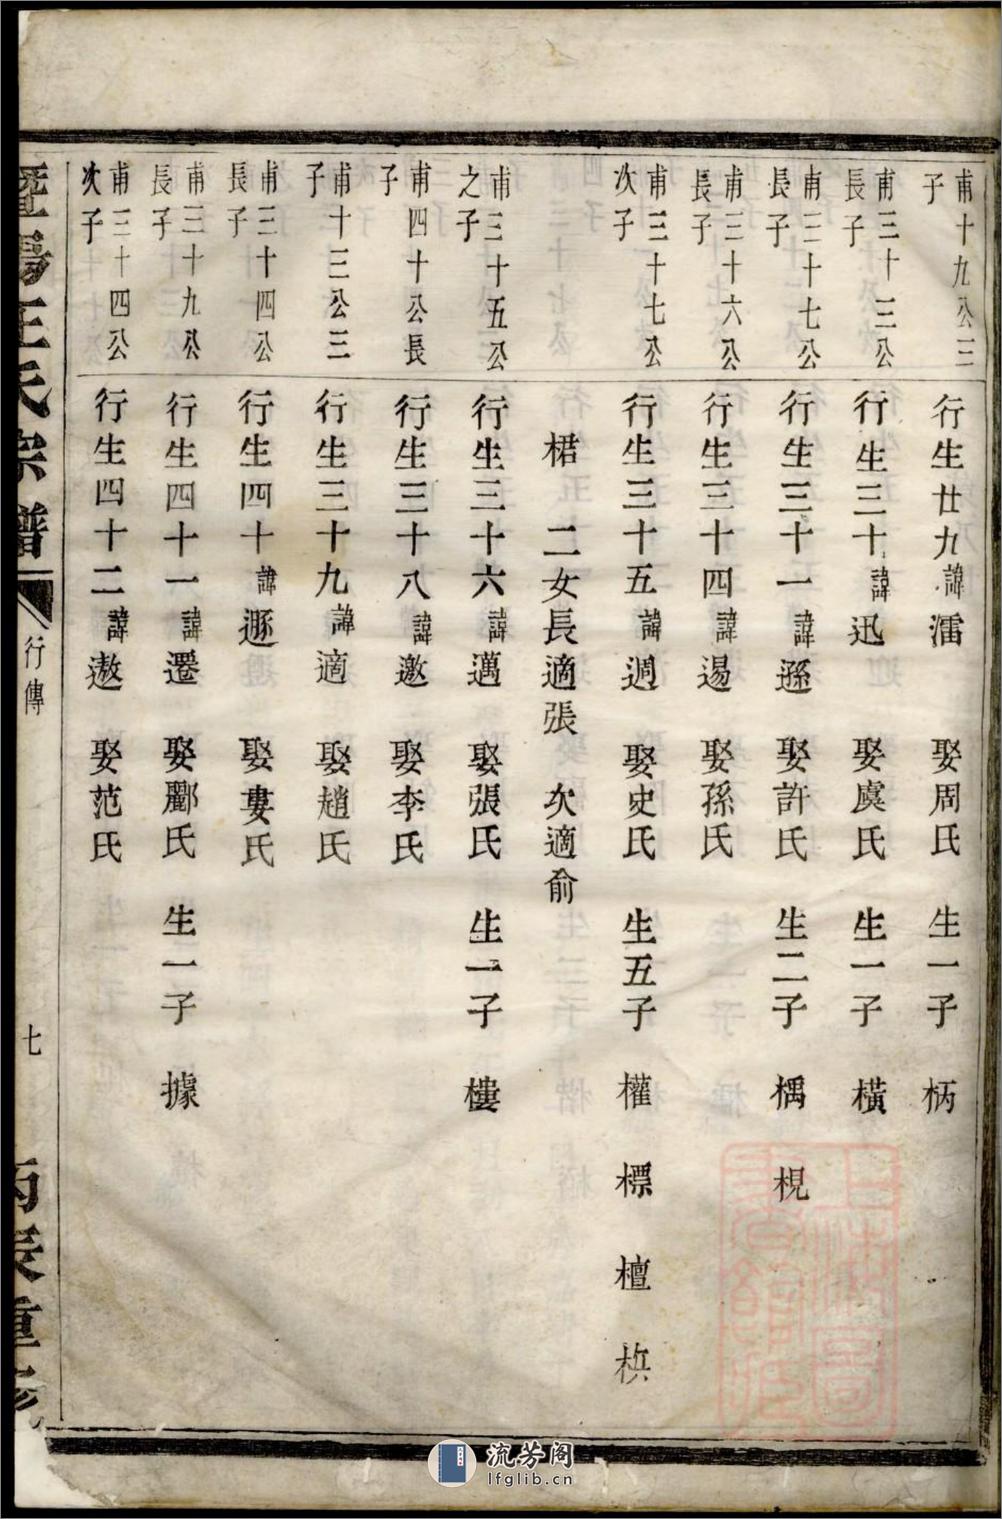 甫十九公三子
行生廿九諱澑 娶周氏 生一子 柄
甫三十三公長子
行生三十諱迅 娶虞氏 生一子 橫
甫二十七公長子
行生三十一諱遜 娶許氏 生二子 楀 梘
甫三十六公長子
行生三十四諱逿 娶孫氏
甫三十七公次子
行生三十五諱週 娶史氏 生五子 權 標 檀 栱
楉 二女長適張 次適俞
甫三十五公之子
行生三十六諱邁 娶張氏 生一子 樓
甫四十公長子
行生三十八諱邀 娶李氏
甫十三公三子
行生三十九諱適 娶趙氏
甫三十四公長子
行生四十諱遯 娶婁氏
甫三十九公長子
行生四十一諱遷 娶酈氏 生一子 據
甫三十四公次子
行生四十二諱遨 娶范氏
暨陽王氏宗譜
行傳
七
丙辰重
流芳阁
lfglib.cn